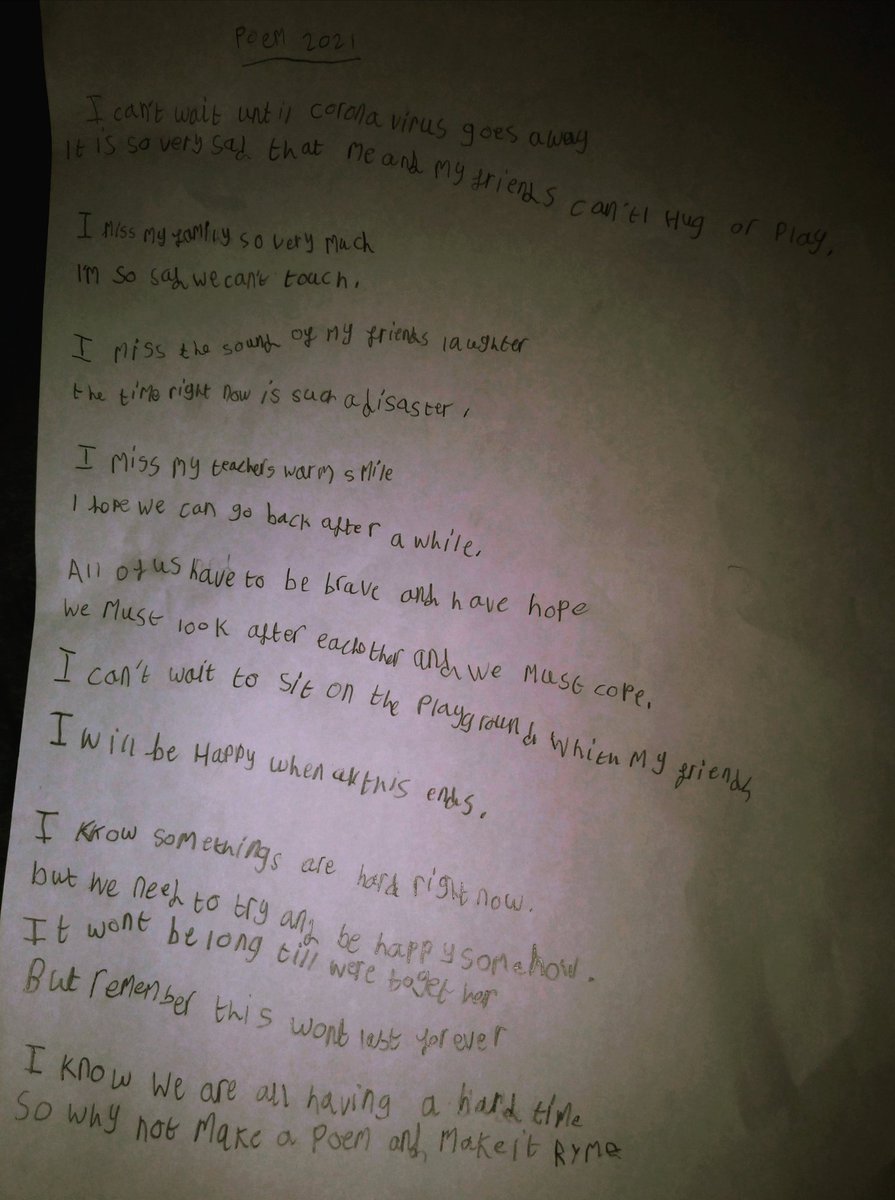 Poem 2021
I can't wait until corona virus goes away
It is so very sad that me and my friends can't Hug or Play.
I miss my family so very much
I'm so sad we can't touch.
I miss the sound of my friends laughter
the time right now is such a disaster.
I miss my teachers warm smile
I hope we can go back after a while.
All of us have to be brave and have hope
we must look after eachother and we must cope.
I can't wait to sit on the Playground whith my friends
I will be Happy when all this ends.
I know somethings are hard right now.
but we need to try and be happy somehow.
It wont be long till were together
But remember this wont last forever
I know we are all having a hard time
So why not make a Poem and make it Ryme